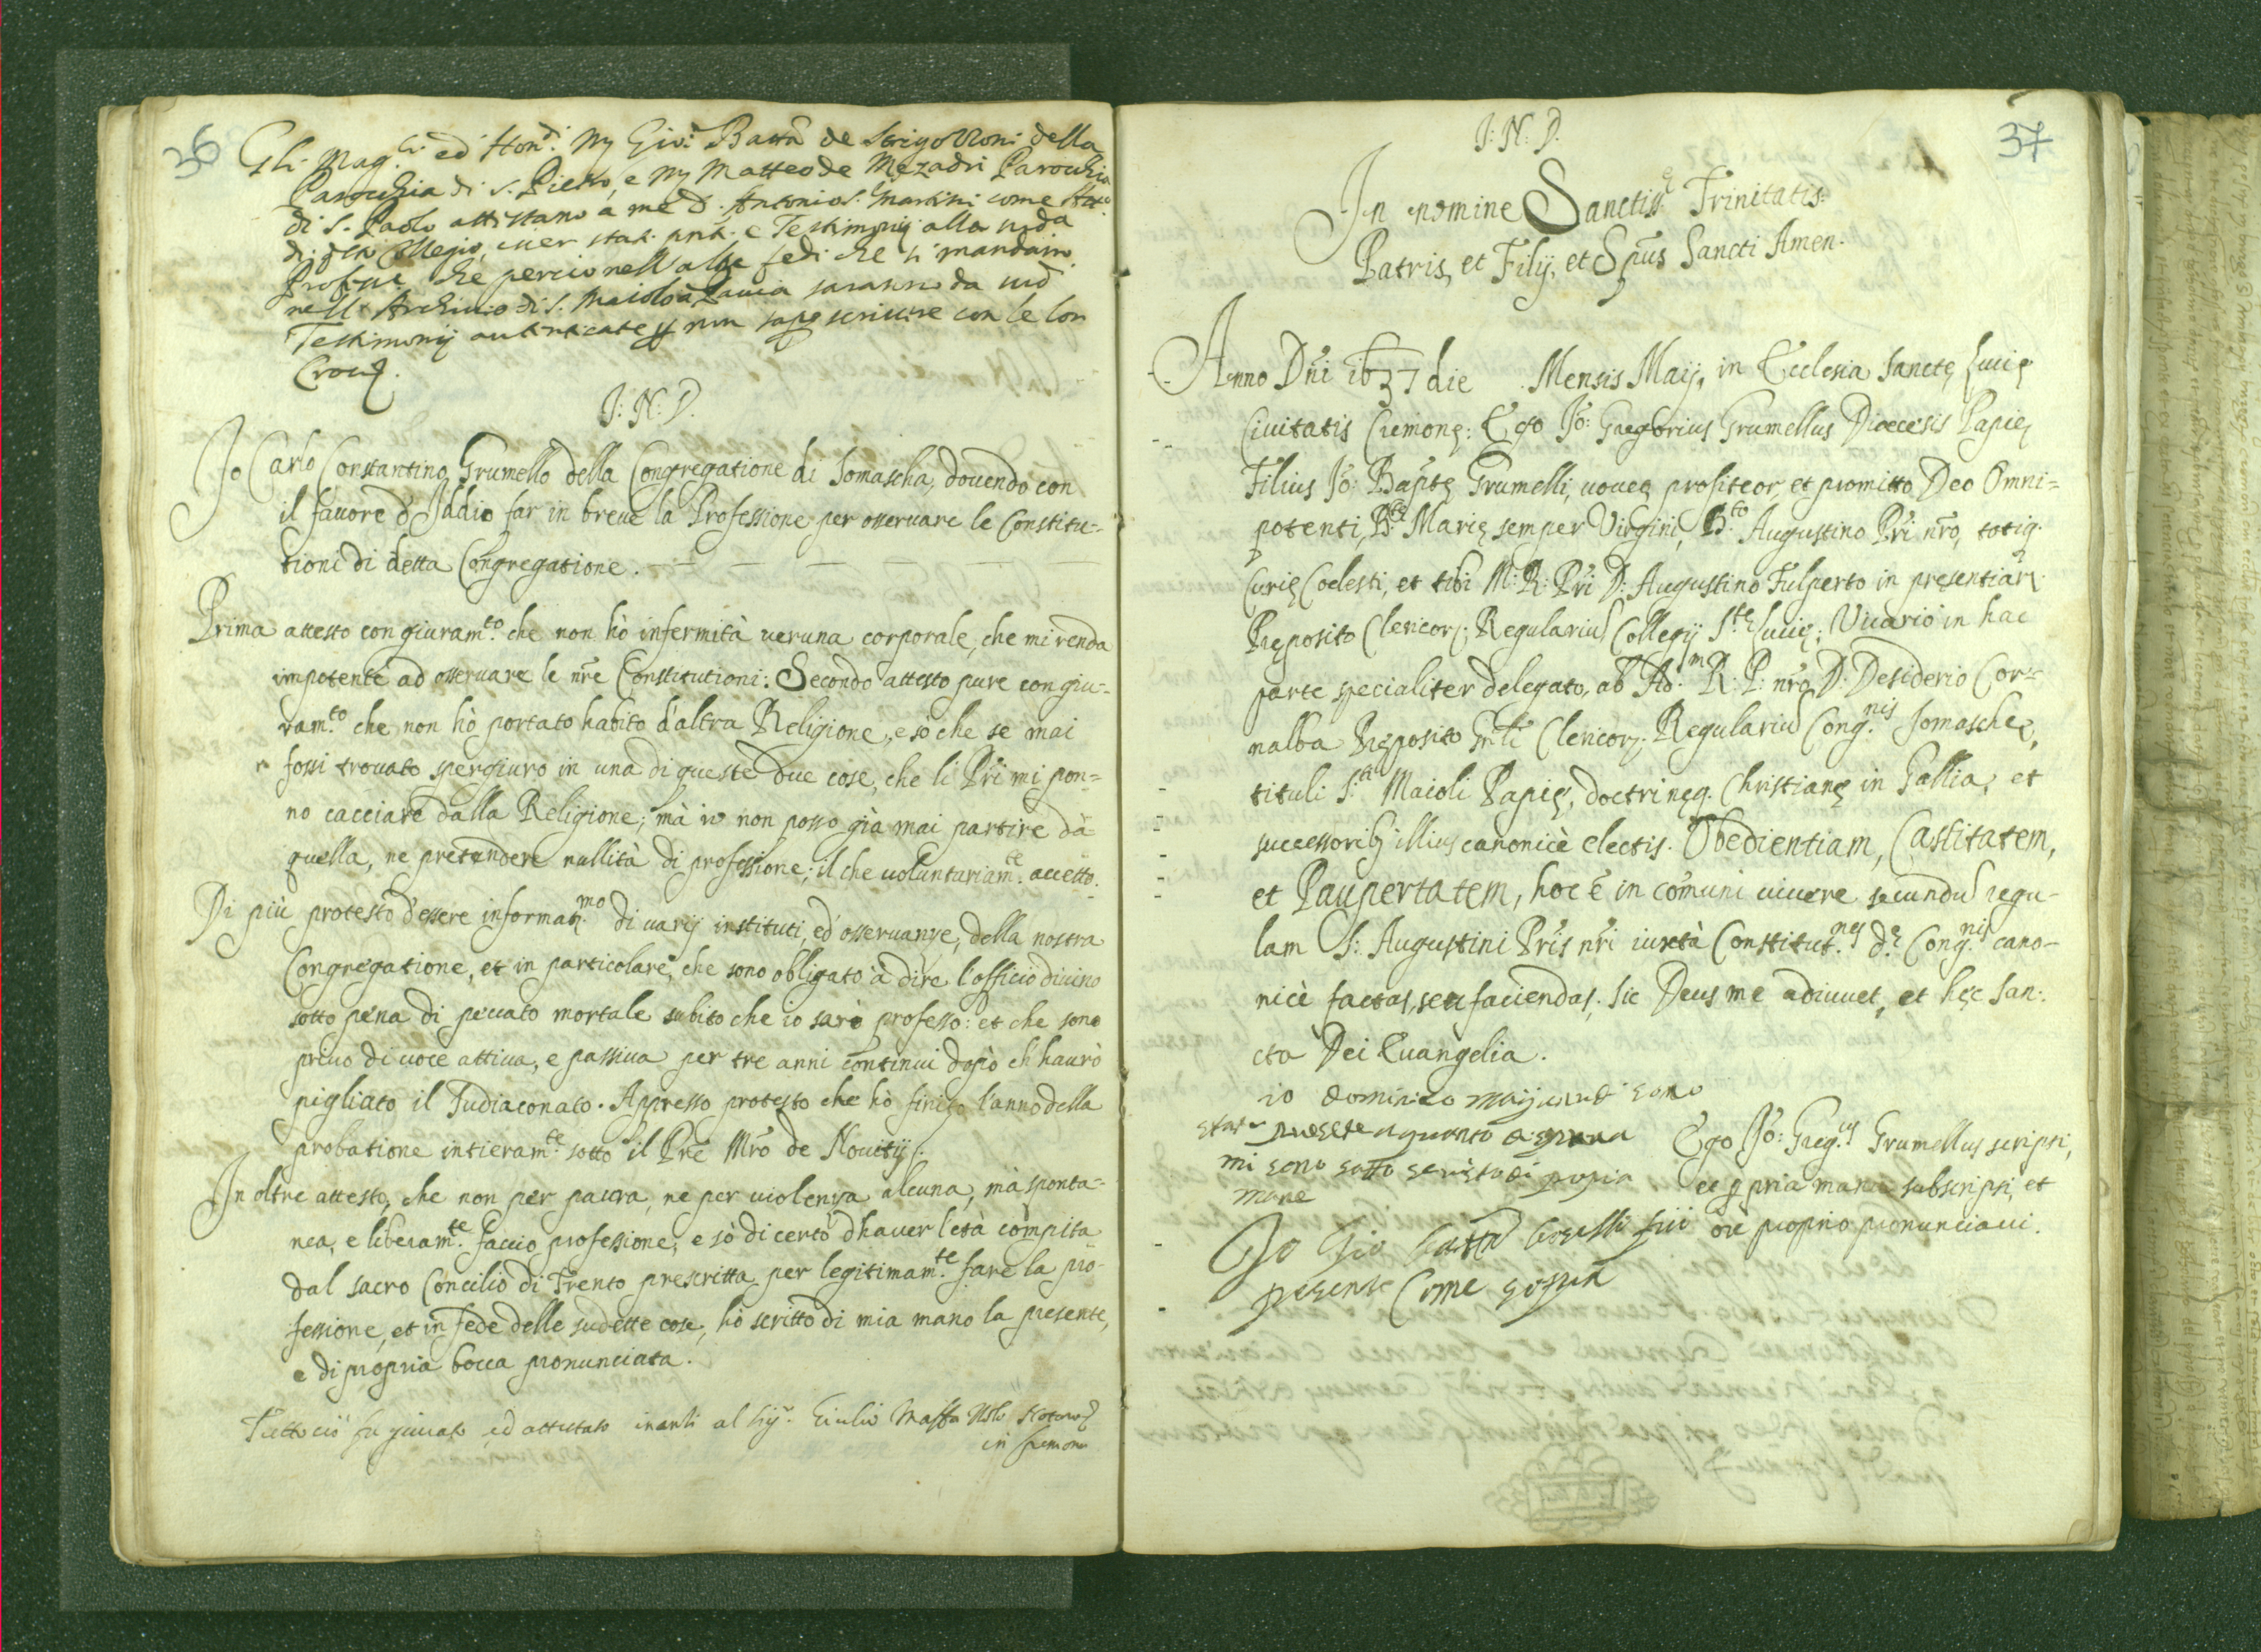 36
Gli Mag.ci ed Hon.di M Gio: Batta de Strigozzoni della
Parochia di S. Pietro, e M Matteo de Mezadri Parochia
di S. Paolo attestano à me D. Antonio S. Martini come Att.
di Collegio, esser stati pnti e Testimonij alla sud.a
Profess.e che perciò nell'altre fedi che si mandano
nell' Archivio di S. Maiolo à Pavia saranno da me
Testimonij autenticate p non saper scrivere con le lor
Croci.
J: N: D.
Jo Carlo Constantino Grumello della Congregatione di Somascha, douendo con
il fauore d'Iddio far in breue la Professione per osseruare le Constitu=
tioni di detta Congregatione.
Prima attesto con giuram.to che non hò infermità ueruna corporale, che mi renda
impotente ad osseruare le nre Constitutioni: Secondo attesto pure con giu=
ram.to che non hò portato habito d'altra Religione, e sò che se mai
fossi trouato spergiuro in una di queste due cose, che li Pri mi pon=
no cacciare dalla Religione; mà io non posso già mai partire dà
quella, ne pretendere nullità di professione; il che uoluntariam.te accetto.
Di più protesto d'essere informat.mo di varij instituti, ed osseruanze, della nostra
Congregatione, et in particolare, che sono obligato à dire l'officio diuino
sotto pena di peccato mortale subito che io sarò professo: et che sono
priuo di uoce attiua, e passiua per tre anni continui dopò ch haurò
pigliato il Sudiaconato. Appresso protesto che hò finito l'anno della
probatione intieram.te sotto il Pre Mro de Nouitij.
In oltre attesto, che non per paura, ne per uiolenza alcuna, mà sponta=
nea, e liberam.te faccio professione; e sò di certo d'hauer l'età compita
dal sacro Concilio di Trento prescritta per legitimam.te fare la pro-
fessione, et in fede delle sudette cose, hò scritto di mia mano la presente,
e di propria bocca pronunciata.
Tutto ciò fu giurato ed attestato inanti al Sig.r Giulio Maffa Notaro
in Cremona
37
J: N: D.
In nomine Sanctiss.ę Trinitatis.
Patris, et Filij, et Spũs Sancti Amen.
Anno Dñi 1637 die Mensis Maij, in Ecclesia Sanctę Lucię
Ciuitatis Cremonę: Ego Jo: Gregorius Grumellus Diœcesis Papię
Filius Jo: Baptę Grumelli, uoueo, profiteor, et promitto Deo Omni=
potenti, B.tę Marię semper Virgini, B.to Augustino Pri nro, totiq.
Curię Coelesti, et tibi M: R: Pri D: Augustino Fulperto in pręsentiarz
Pręposito Clericorz. Regulariũ Collegij S.tę Lucię; Vicario in hac
parte specialiter delegato, ab Ad.m R: P: nro D: Desiderio Cor=
nalba Pręposito Gnli Clericorz. Regulariũ Cong.nis Somaschę,
tituli S.ti Maioli Papię, doctrinęq. Christianę in Gallia, et
successorib9 illius canonicè electis. Obedientiam, Castitatem,
et Paupertatem, hoc ẽ in cõmuni uiuere secundũ regu-
lam S: Augustini Pris nri iuxtà Constitut.nes d.ę Cong.nis cano-
nicè factas, seu faciendas. Sic Deus me adiuuet, et hęc San-
cta Dei Euangelia.
io Dominico sono
stato presete a quanto di sopra
mi sono sotto scristo di propia
mane
Ego Jo: Greg.us Grumellus scripsi,
et ppria manu subscripsi, et
ore proprio pronunciaui.
Jo Gio Batta fui
presente Come sopra